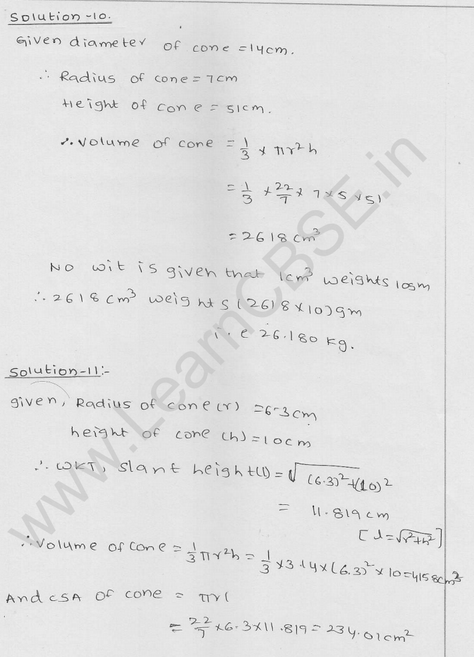 Solution-10.
Given diameter of cone = 14cm.
∴ Radius of cone = 7cm
Height of cone = 51cm.
∴ Volume of cone = 1/3 × πr²h
= 1/3 × 22/7 × 7 × 5 × 51
= 2618 cm³
No wit is given that 1cm³ weights 10gm
∴ 2618 cm³ weights (2618 × 10) gm
i.e 26.180 kg.
Solution-11:-
given, Radius of cone (r) = 6.3cm
height of cone (h) = 10cm
∴ WKT, slant height (l) = √(6.3)²+(10)²
= 11.819 cm
[l = √r²+h²]
∴ Volume of cone = 1/3 πr²h = 1/3 × 3.14 × (6.3)² × 10 = 415.8cm³
And CSA of cone = πrl
= 22/7 × 6.3 × 11.819 = 234.01cm²
www.LearnCBSE.in